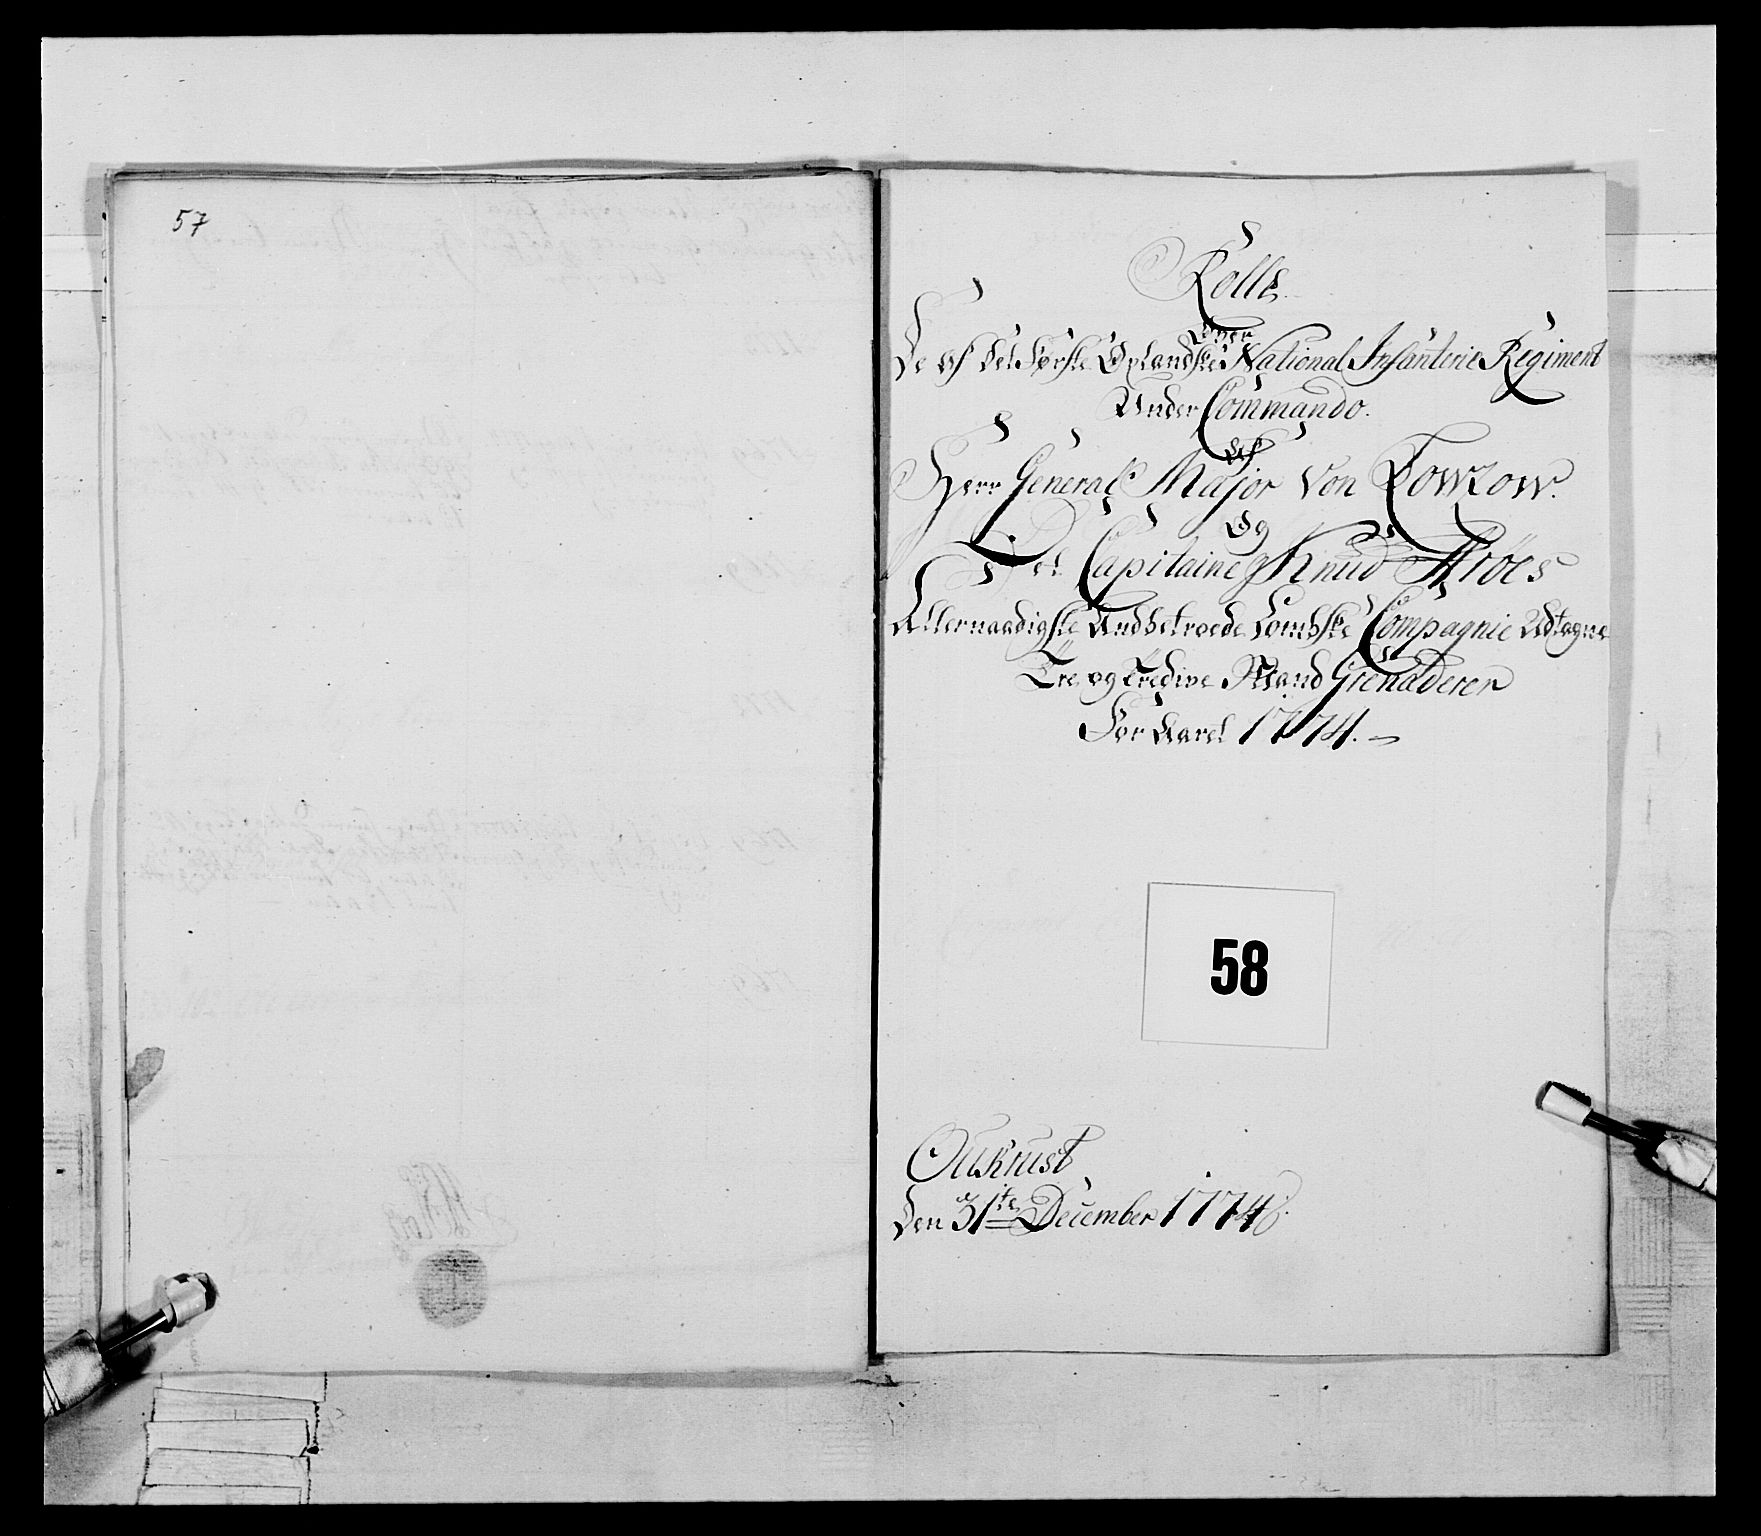 57
Rolle
Over
De af det Første Oplandske National Infanterie Regiment
Under Commando.
Af
Herr General Major Von Lowzow.
Og
Capitaine Knud
Allernaadigst Andbetroede Lombske Compagnie Udtagne
Tre og Tredive Mand Grenaderer
For Aaret 1774.
58
Oukrust
Den 31te December 1774